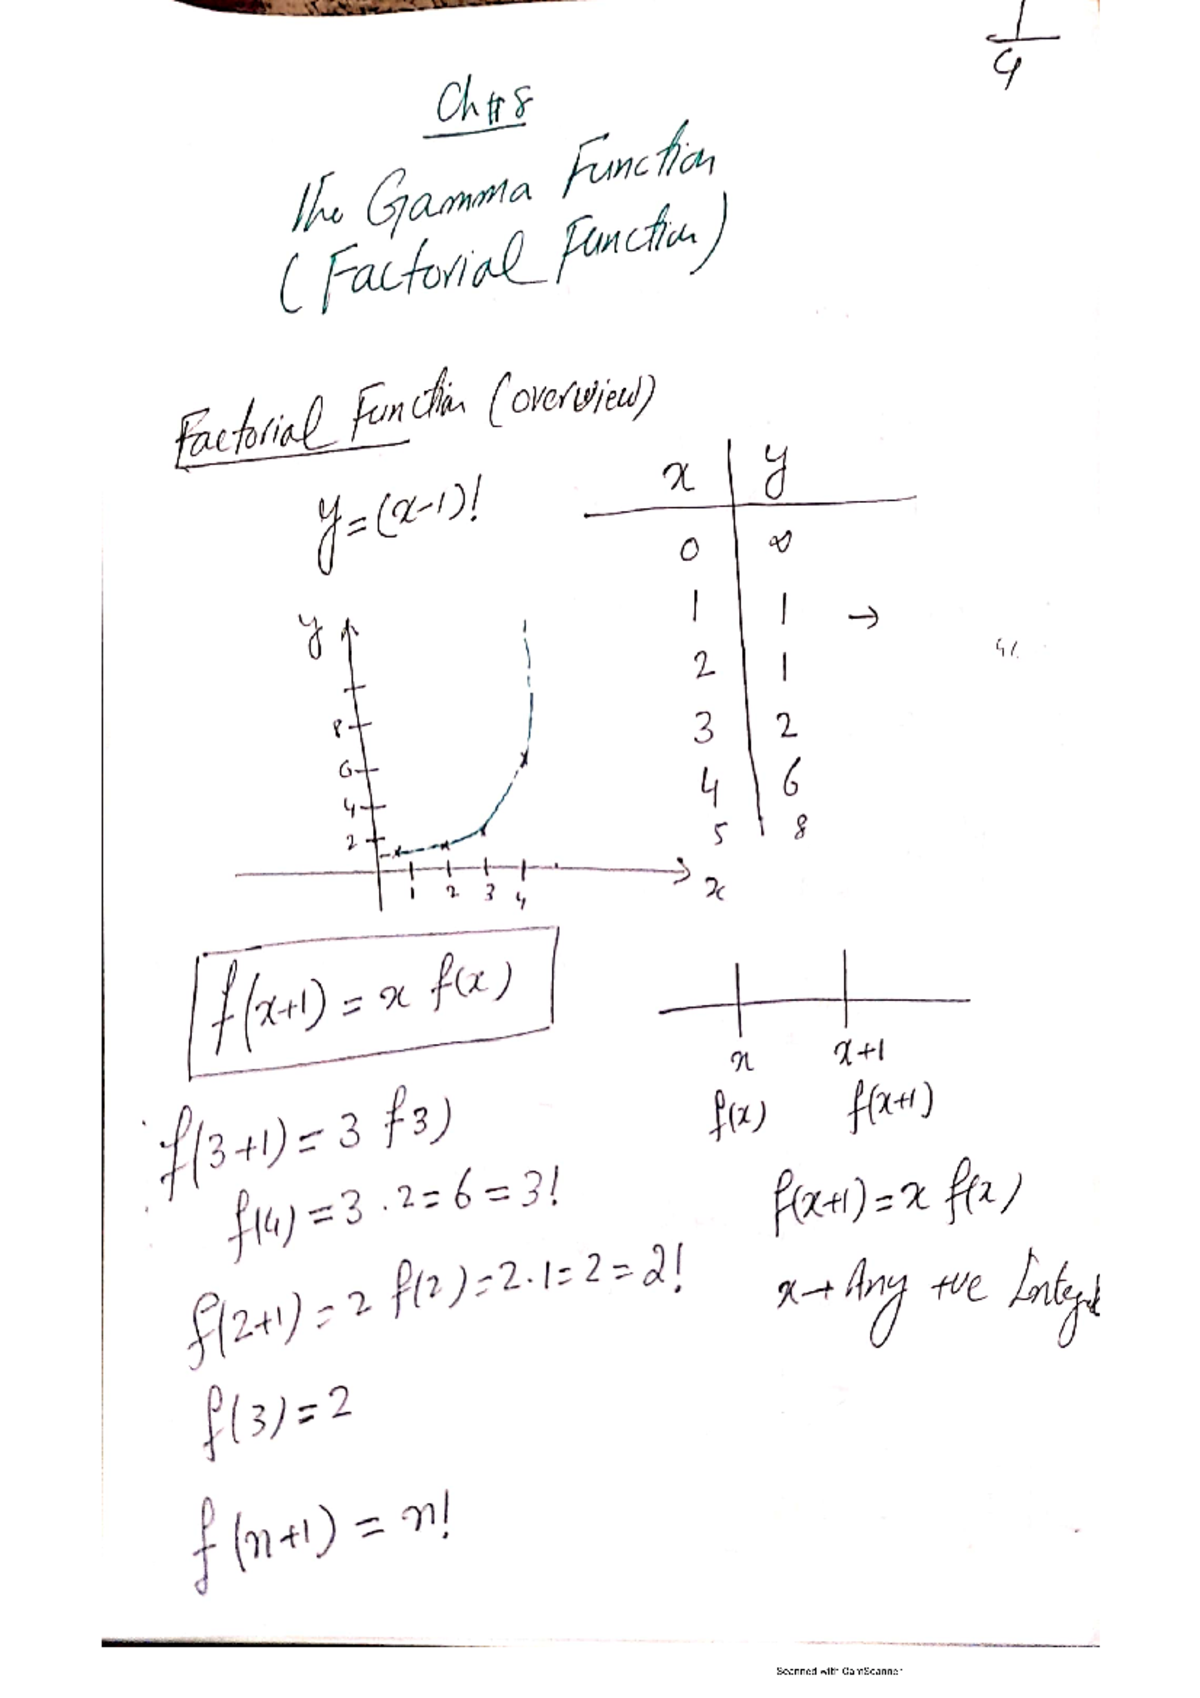 1/4
Ch # 8
The Gamma Function
(Factorial Function)
Factorial Function (overview)
y = (x-1)!
x | y
0 | ∞
1 | 1 →
2 | 1
3 | 2
4 | 6
5 | 8
y
8
6
4
2
1 2 3 4
x
f(x+1) = x f(x)
x x+1
f(x) f(x+1)
f(3+1) = 3 f3)
f(4) = 3 . 2 = 6 = 3!
f(x+1) = x f(x)
f(2+1) = 2 f(2) = 2.1 = 2 = 2!
x → Any +ve
f(3) = 2
f(n+1) = n!
Scanned with CamScanner